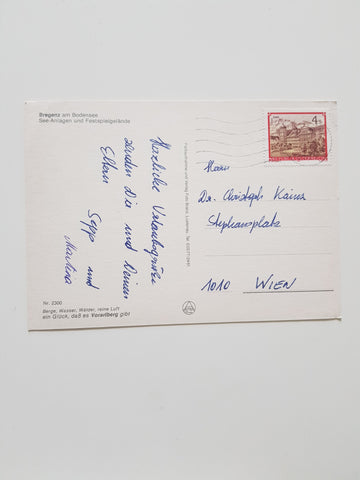 Bregenz am Bodensee
See-Anlagen und Festspielgelände
Herzliche Urlaubsgrüße
senden Dir und Deinen
Eltern
Sepp und
Martina
Nr. 2300
Berge, Wasser, Wälder, reine Luft
ein Glück, daß es Vorarlberg gibt
4
Herrn
Dr. Christoph Kainz
Stephansplatz
1010 WIEN